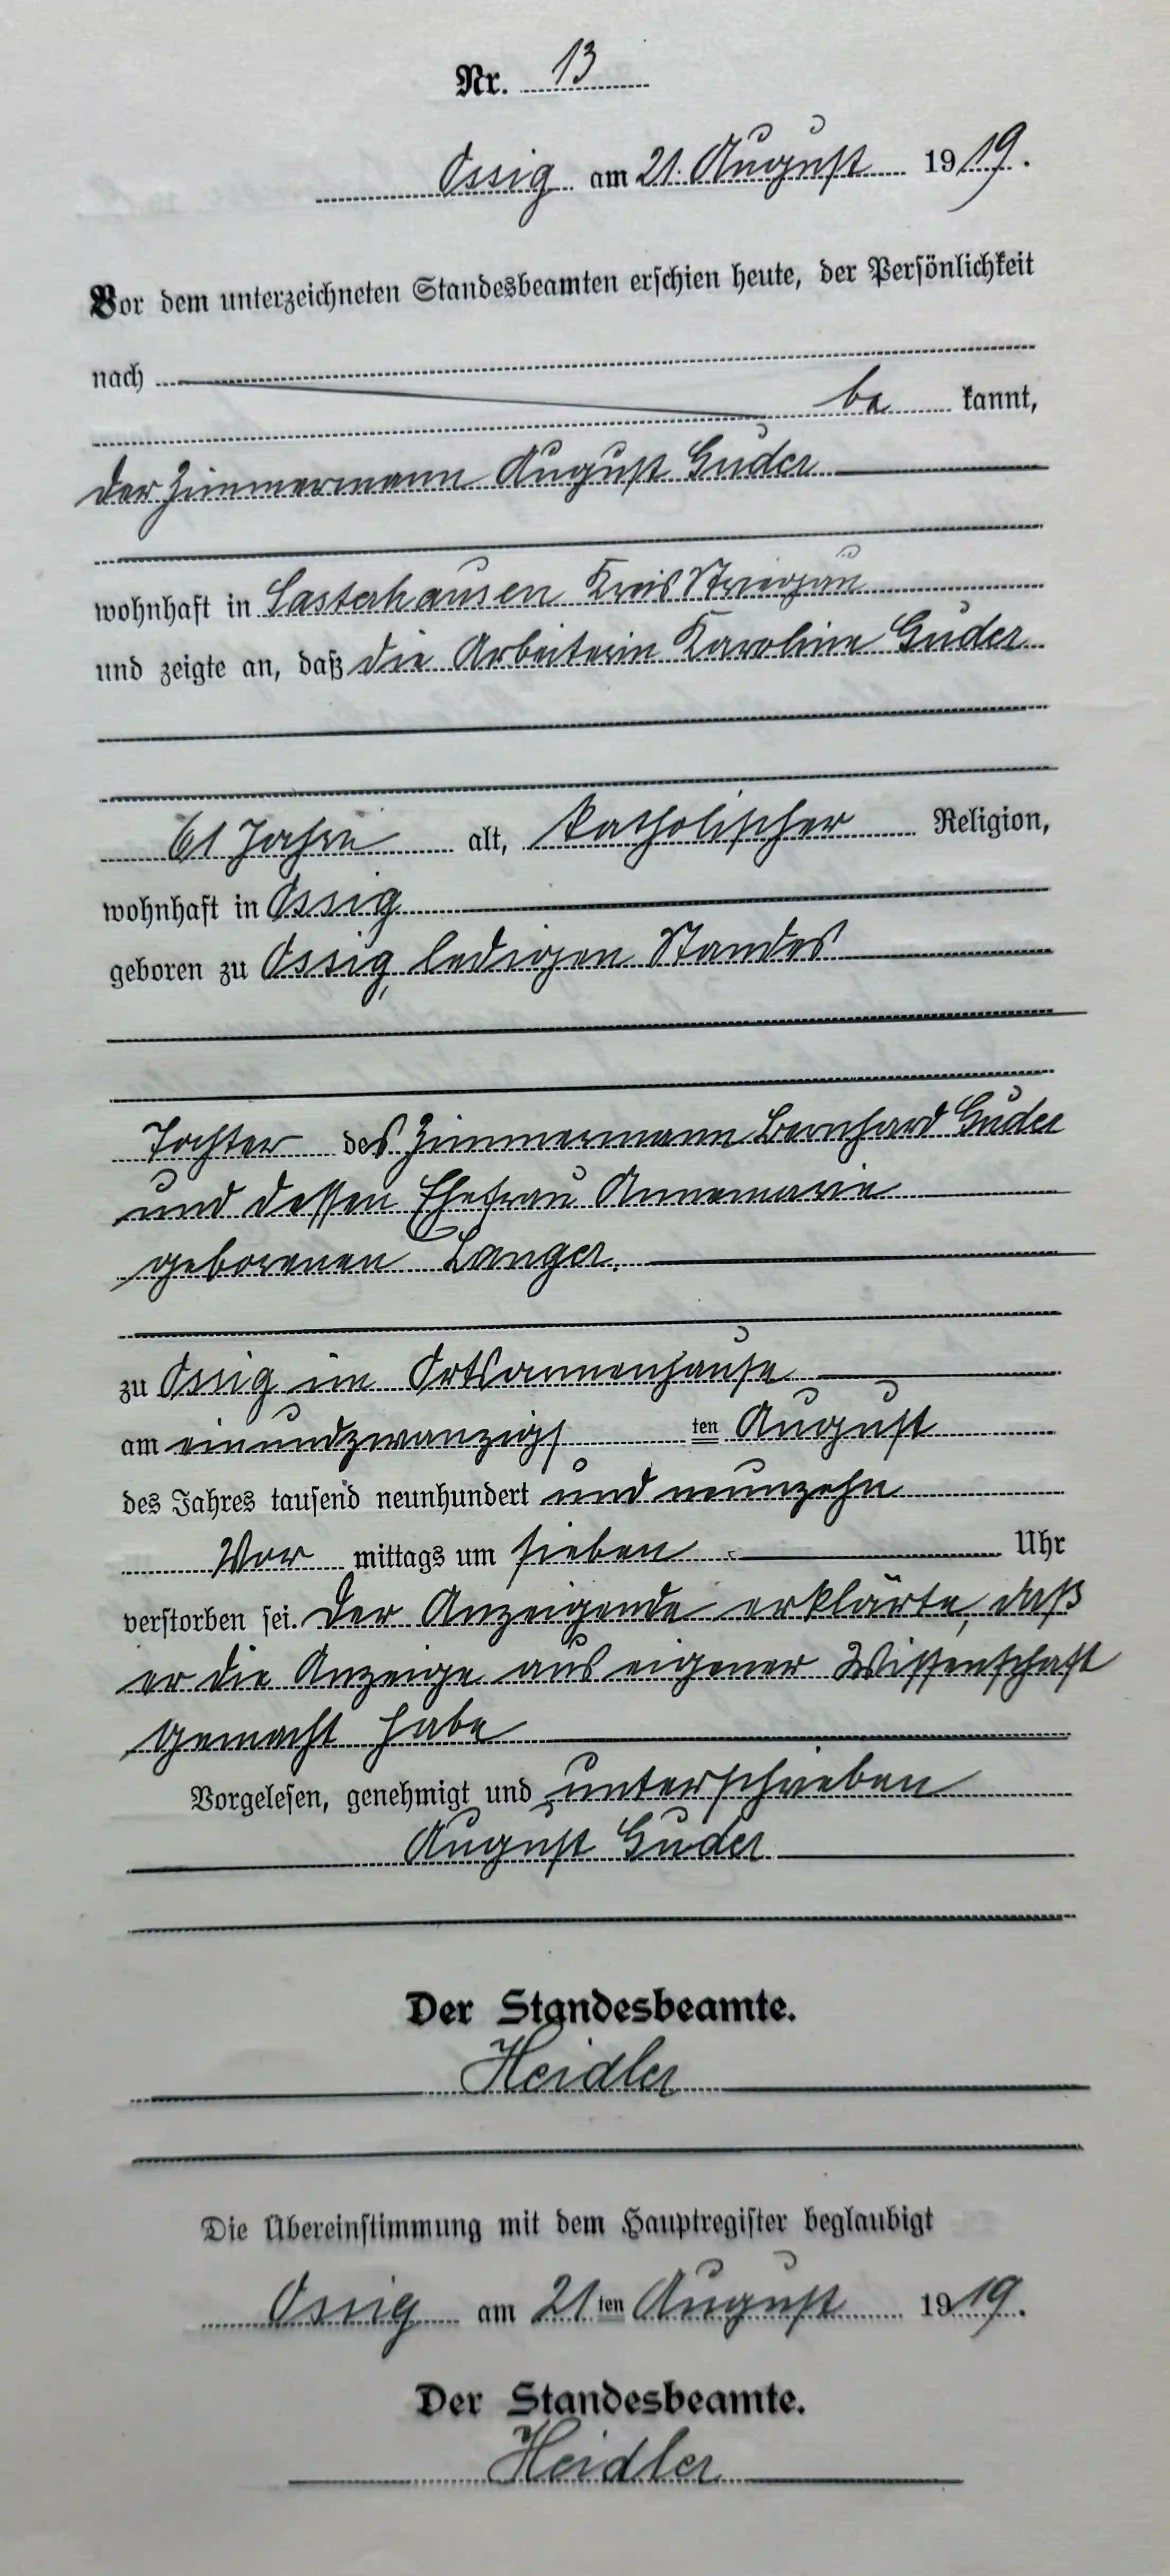 Nr. 13
Ossig am 21. August 1919.
Vor dem unterzeichneten Standesbeamten erschien heute, der Persönlichkeit
nach
be kannt,
der Zimmermann August Guder
wohnhaft in Lasterhausen Kreis Striegau
und zeigte an, daß die Arbeiterin Karoline Guder
61 Jahre alt, katholischer Religion,
wohnhaft in Ossig
geboren zu Ossig, ledigen Standes
Tochter des Zimmermann Bernhard Guder
und dessen Ehefrau Annemarie
geborenen Langer.
zu Ossig im Ortsarmenhause
am einundzwanzigs ten August
des Jahres tausend neunhundert und neunzehn
Vor mittags um sieben Uhr
verstorben sei. Der Anzeigende erklärte, daß
er die Anzeige aus eigener Wissenschaft
gemacht habe
Vorgelesen, genehmigt und unterschrieben
August Guder
Der Standesbeamte.
Heidler
Die Übereinstimmung mit dem Hauptregister beglaubigt
Ossig am 21ten August 1919.
Der Standesbeamte.
Heidler